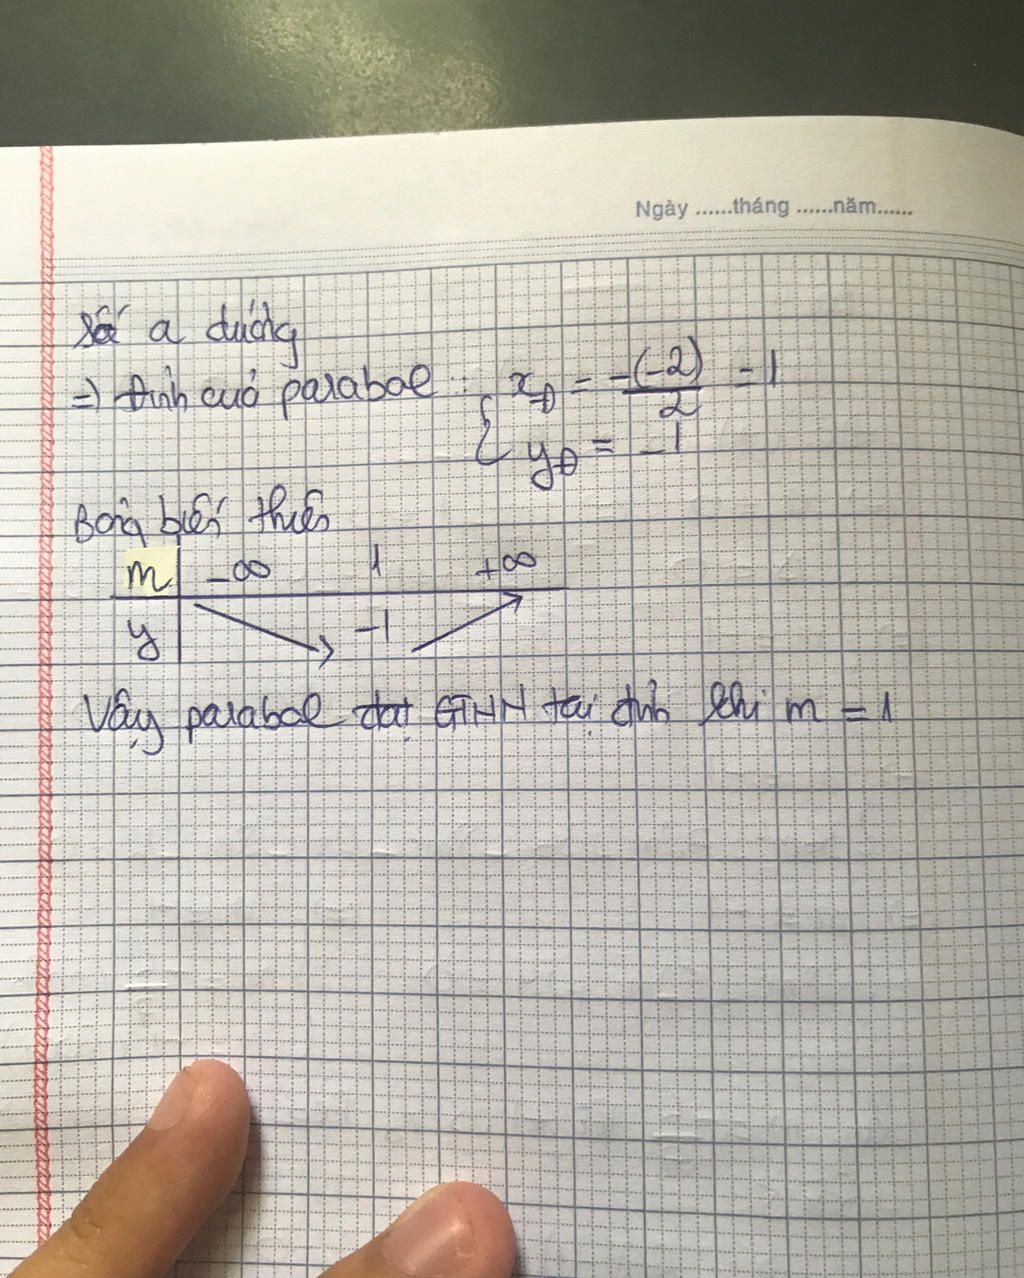 Ngày ......tháng ......năm......
số a dương
=) đỉnh của parabol : { x_Đ = -(-2)/2 = 1
y_Đ = -1
Bảng biến thiên
m -∞ 1 +∞
y -1
Vậy parabol đạt GTNN tại đỉnh khi m = 1